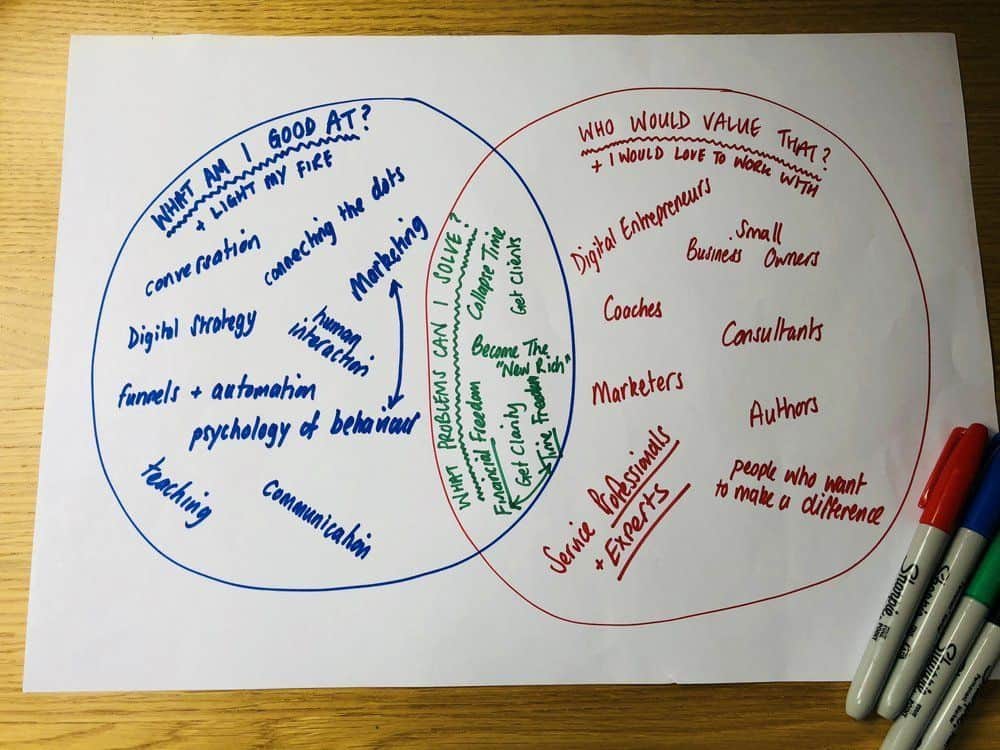 WHAT AM I GOOD AT?
+ LIGHT MY FIRE
conversation
connecting the dots
Marketing
Digital strategy
human
interaction
funnels + automation
psychology of behaviour
teaching
communication
WHAT PROBLEMS CAN I SOLVE?
Collapse Time
Get Clients
Become The
"New Rich"
Financial Freedom
Get Clarity
Time Freedom
WHO WOULD VALUE THAT?
+ I WOULD LOVE TO WORK WITH
Digital Entrepreneurs
Small
Business Owners
Coaches
Consultants
Marketers
Authors
Service Professionals
+ Experts
people who want
to make a difference
Sharpie
FINE
POINT
Sharpie
Sharpie